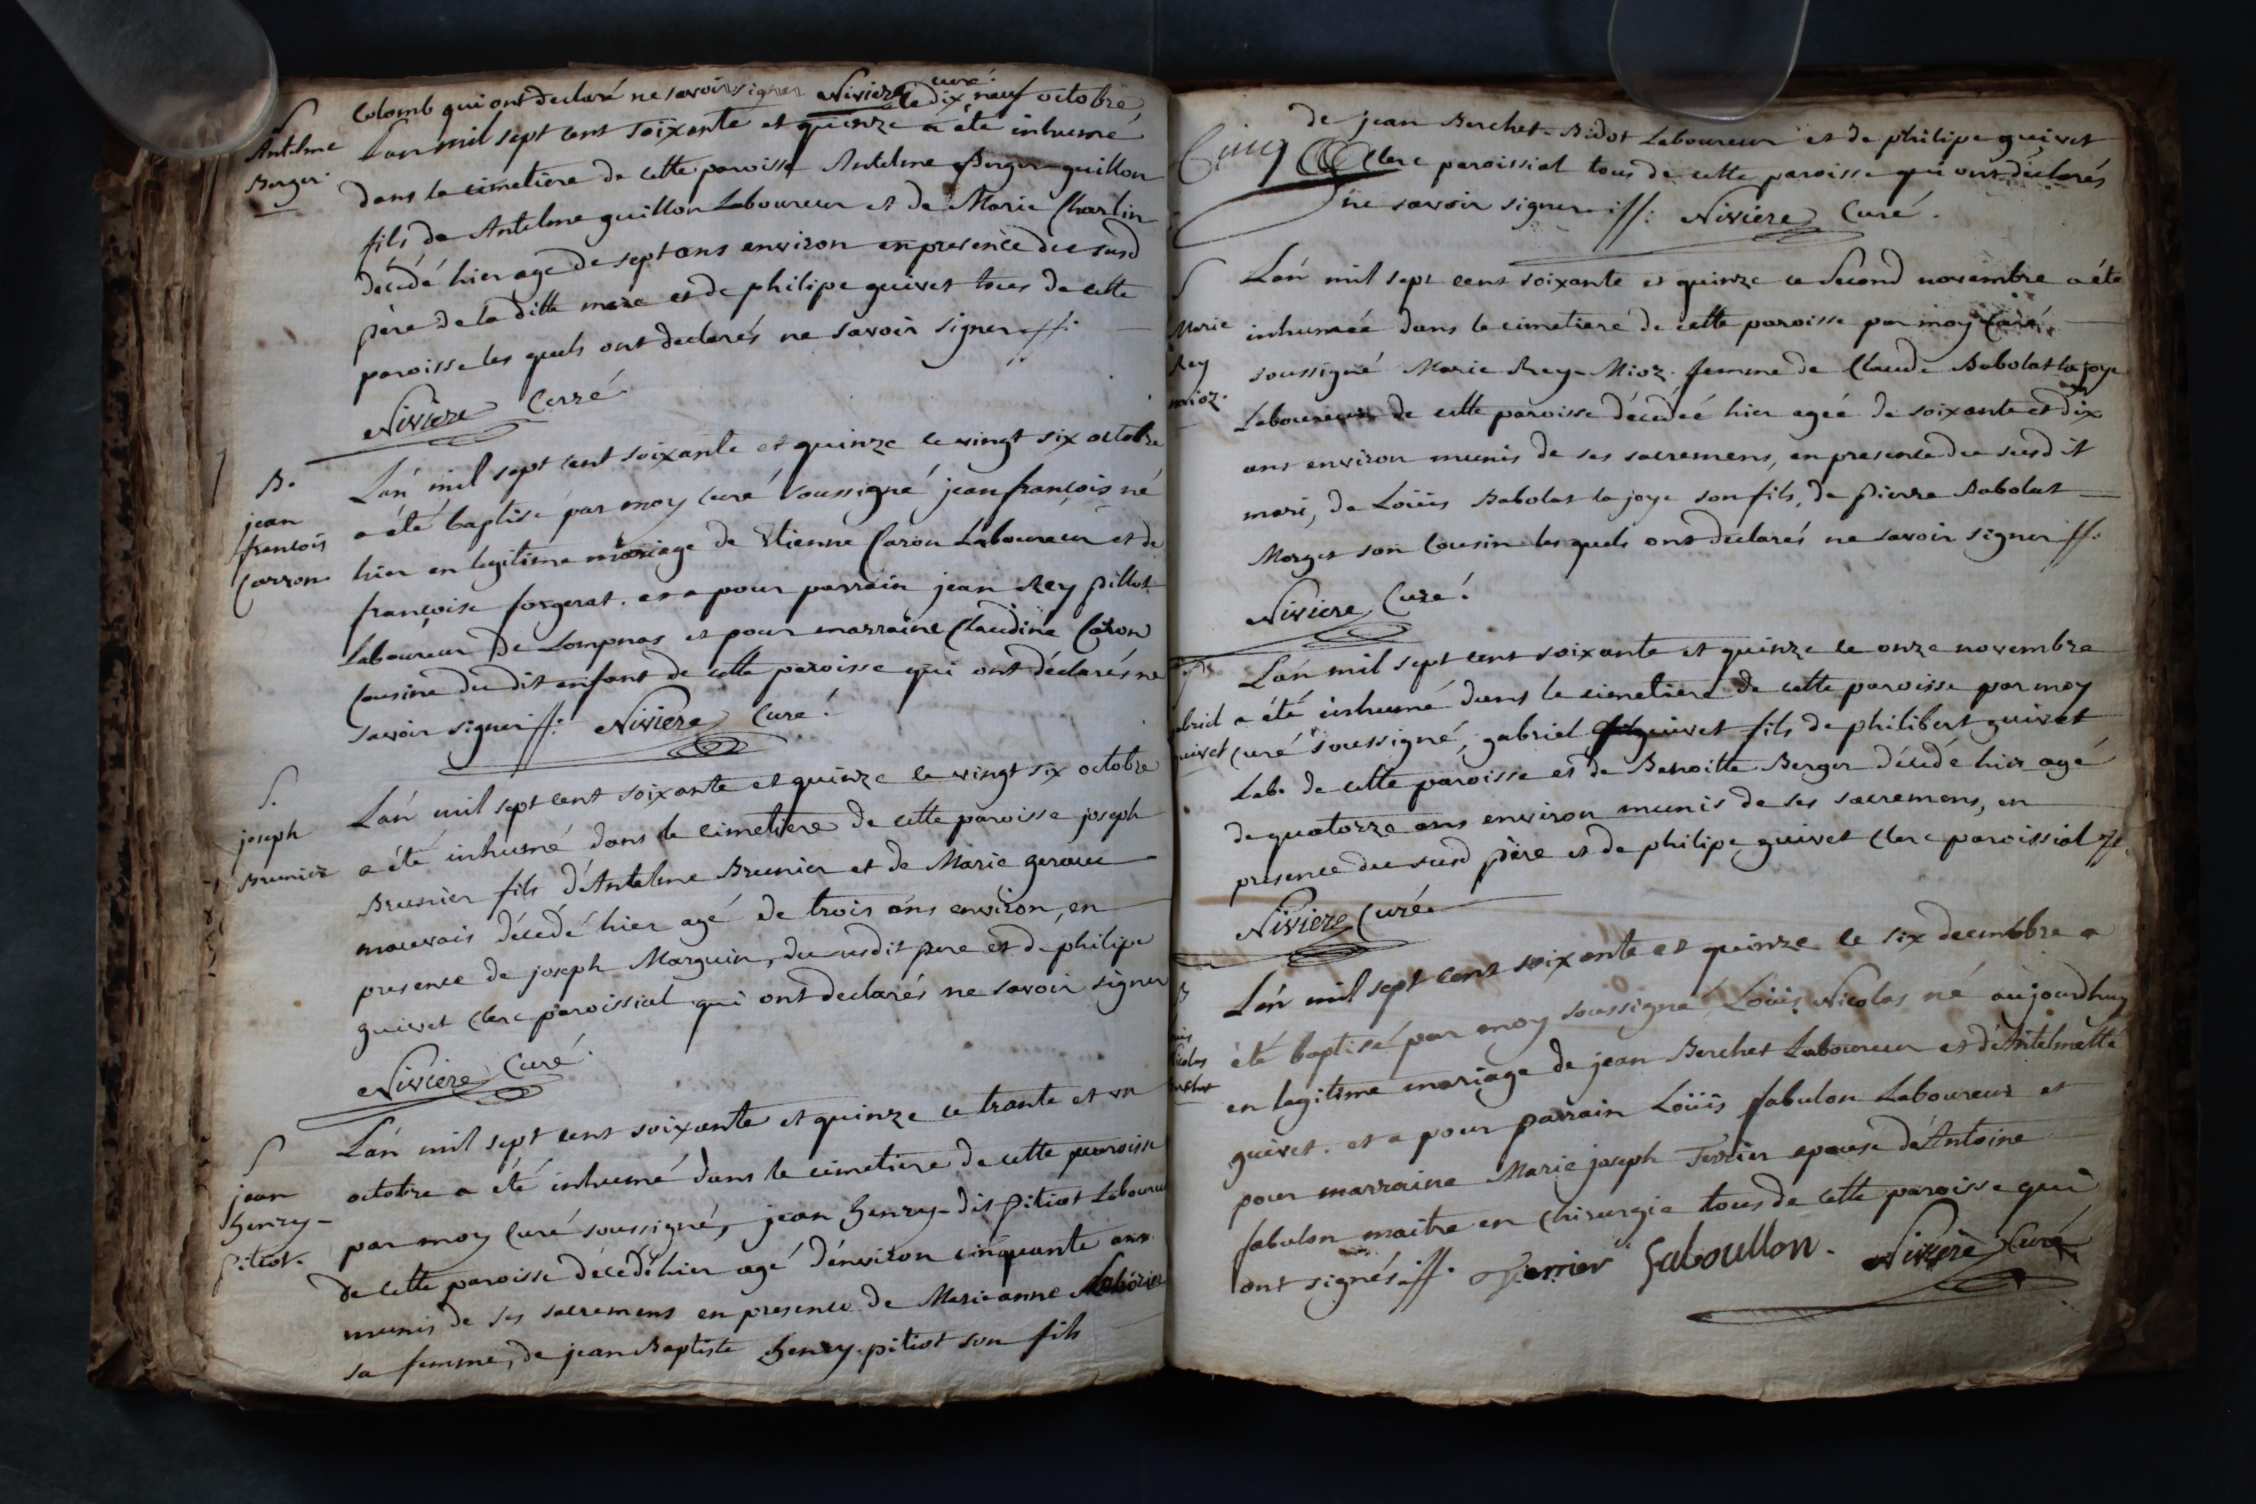 Colomb qui ont declaré ne savoir signer Niviere curé.
S
Antelme
Berger.
L'an mil sept cent soixante et quinze le dix neuf octobre
a été inhumé
dans le cimetiere de cette paroisse Antelme Berger-guillon
fils de Antelme guillon Laboureur et de Marie Charlin
décédé hier age de sept ans environ en presence du susd
père de la ditte mere et de philipe guivet tous de cette
paroisse les quels ont declarés ne savoir signer ff:
Niviere Curé
B.
jean
françois
Carron
L'an mil sept cent soixante et quinze le vingt six octobre
a été baptisé par moy curé soussigné jean françois né
hier en legitime mariage de Etienne Caron Laboureur et de
françoise forgerat. et a pour parrain jean Rey pillot
Laboureur De Lompnas et pour marraine Claudine Caron
Cousine du dit enfant de cette paroisse qui ont déclarés ne
savoir signer ff: Niviere Curé.
S.
joseph
Brunier
L'an mil sept cent soixante et quinze le vingt six octobre
a été inhumé dans le cimetiere de cette paroisse joseph
Brunier fils d'Antelme Brunier et de Marie
mauvais décédé hier agé de trois ans environ, en
presence de joseph Marguin, du susdit pere et de philipe
guivet clerc paroissial qui ont declarés ne savoir signer
Niviere Curé.
S
jean
henry-
pitiot.
L'an mil sept cent soixante et quinze le trante et un
octobre a été inhumé dans le cimetiere de cette paroisse
par moy Curé soussigné, jean henry-dit pitiot Laboureur
de cette paroisse décédé hier agé d'environ cinquante ans
munis de ses sacremens en presence de Marieanne
sa femme, de jean Baptiste henry-pitiot son fils
de jean Berchet-Bidot Laboureur et de philipe guivet
Clerc paroissial tous de cette paroisse qui ont déclarés
ne savoir signer ff: Niviere Curé.
S
Marie
Rey
mioz.
L'an mil sept cent soixante et quinze le second novembre a été
inhumée dans le cimetiere de cette paroisse par moy Curé
soussigné Marie Rey-Mioz. femme de Claude Babolat la joye
Laboureur de cette paroisse décédée hier agée de soixante et dix
ans environ munis de ses sacremens, en presence du susdit
mari, de Loüis Babolat la joye son fils, de pierre Babolat
Morget son Cousin les quels ont declarés ne savoir signer ff:
Niviere Curé.
S
abriel
uivet
L'an mil sept cent soixante et quinze le onze novembre
a été inhumé dans le cimetiere de cette paroisse par moy
curé soussigné, gabriel guivet fils de philibert guivet
Lab. de cette paroisse et de Benoitte Berger décédé hier agé
de quatorze ans environ munis de ses sacremens, en
presence du susd père et de philipe guivet Clerc paroissial ff.
Niviere Curé.
B
uis
icolas
rchet
L'an mil sept cent soixante et quinze le six decembre a
été baptisé par moy soussigné Loüis Nicolas né aujourdhuy
en legitime mariage de jean Berchet Laboureur et d'Antelmette
guivet. et a pour parrain Loüis fabulon Laboureur et
pour marraine Marie joseph Terrier epouse d'Antoine
fabulon maitre en chirurgie tous de cette paroisse qui
ont signés ff. Terrier faboullon. Niviere Curé